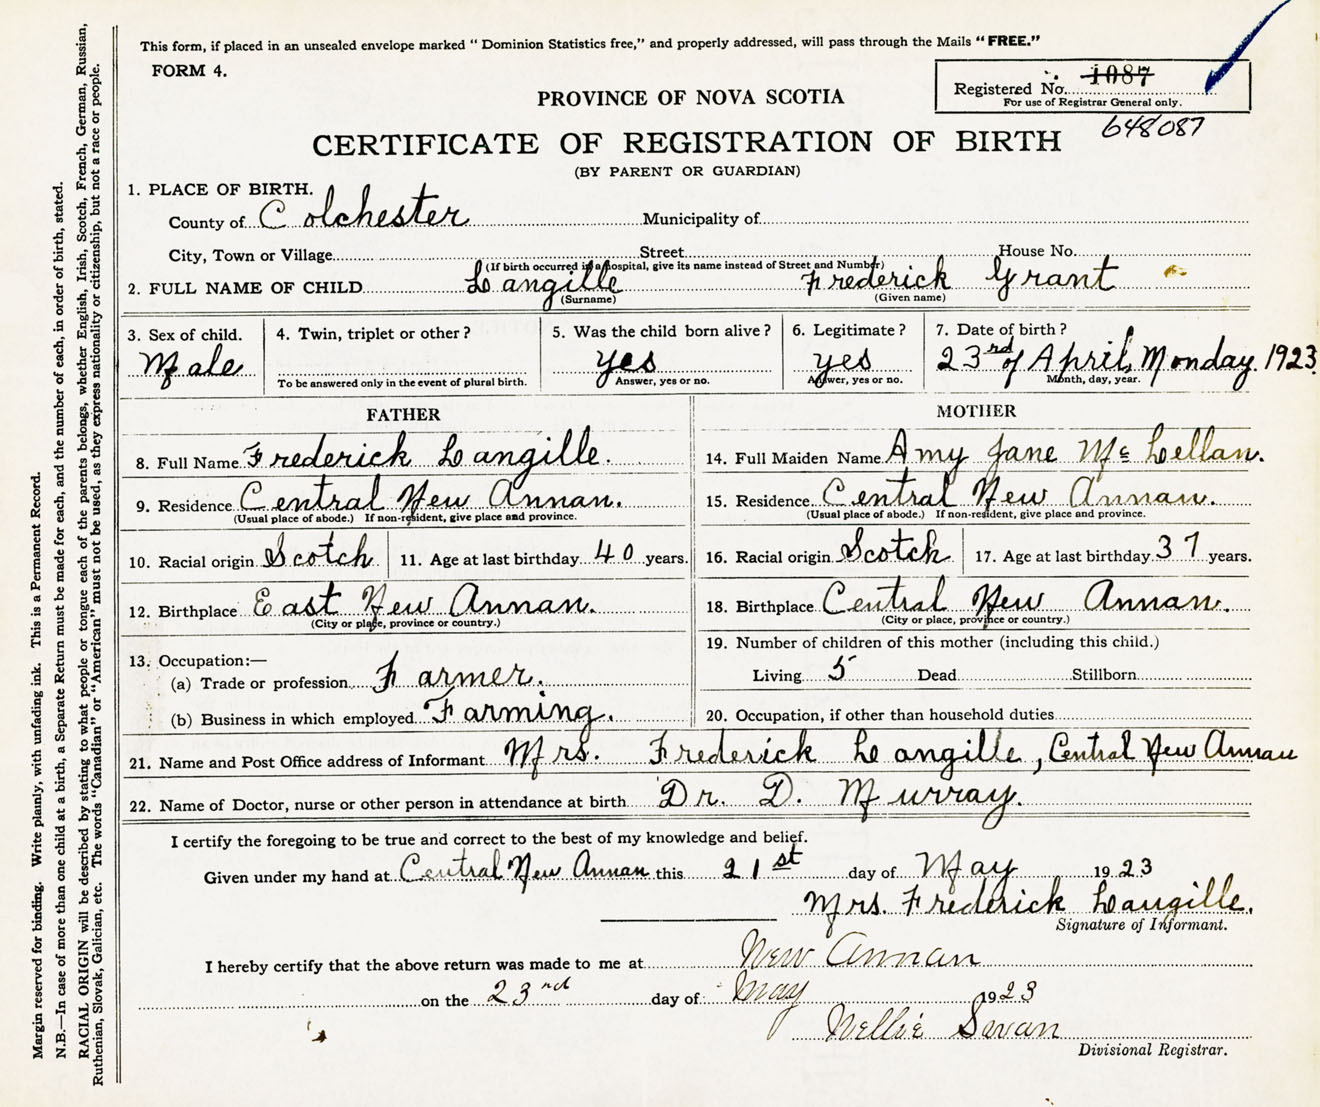 This form, if placed in an unsealed envelope marked "Dominion Statistics free," and properly addressed, will pass through the Mails "FREE."
FORM 4.
Registered No. 1087
For use of Registrar General only.
648087
PROVINCE OF NOVA SCOTIA
CERTIFICATE OF REGISTRATION OF BIRTH
(BY PARENT OR GUARDIAN)
1. PLACE OF BIRTH.
County of Colchester Municipality of
City, Town or Village Street House No.
(If birth occurred in a hospital, give its name instead of Street and Number)
2. FULL NAME OF CHILD Langille Frederick Grant
(Surname) (Given name)
3. Sex of child. 4. Twin, triplet or other? 5. Was the child born alive? 6. Legitimate? 7. Date of birth?
Male yes yes 23rd of April, Monday. 1923.
To be answered only in the event of plural birth. Answer, yes or no. Answer, yes or no. Month, day, year.
FATHER MOTHER
8. Full Name Frederick Langille. 14. Full Maiden Name Amy Jane Mc Lellan.
9. Residence Central New Annan. 15. Residence Central New Annan.
(Usual place of abode.) If non-resident, give place and province. (Usual place of abode.) If non-resident, give place and province.
10. Racial origin Scotch 11. Age at last birthday 40 years. 16. Racial origin Scotch 17. Age at last birthday 37 years.
12. Birthplace East New Annan. 18. Birthplace Central New Annan.
(City or place, province or country.) (City or place, province or country.)
19. Number of children of this mother (including this child.)
13. Occupation:—
(a) Trade or profession Farmer. Living 5 Dead Stillborn
(b) Business in which employed Farming. 20. Occupation, if other than household duties
21. Name and Post Office address of Informant Mrs. Frederick Langille, Central New Annan
22. Name of Doctor, nurse or other person in attendance at birth Dr. D. Murray.
I certify the foregoing to be true and correct to the best of my knowledge and belief.
Given under my hand at Central New Annan this 21st day of May 1923
Mrs. Frederick Langille.
Signature of Informant.
I hereby certify that the above return was made to me at New Annan
on the 23rd day of May 1923
Nellie Swan
Divisional Registrar.
Margin reserved for binding. Write plainly, with unfading ink. This is a Permanent Record.
N.B.—In case of more than one child at a birth, a Separate Return must be made for each, and the number of each, in order of birth, stated.
RACIAL ORIGIN will be described by stating to what people or tongue each of the parents belongs, whether English, Irish, Scotch, French, German, Russian,
Ruthenian, Slovak, Galician, etc. The words "Canadian" or "American" must not be used, as they express nationality or citizenship, but not a race or people.